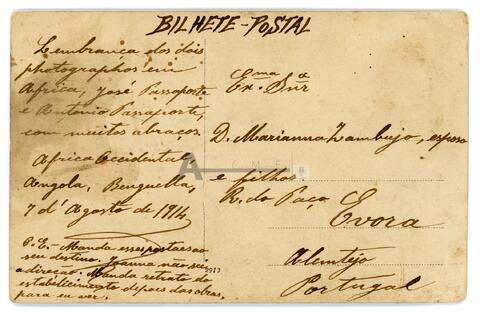 BILHETE-POSTAL
Lembrança dos dois
photographos em
Africa, José Passaporte
e Antonio Passaporte,
com muitos abraços.
Africa Occidental,
Angola, Benguella,
7 d'Agosto de 1914
P.E.- Manda esses postaes ao
seu destino. Joanna não sei
a direcção. Manda retrato do
estabelecimento depois das obras,
para eu ver.
Exma. Snra
D. Marianna Zambujo, esposo
e filhos.
R. do Paço
Evora
Alemtejo
Portugal
ACME
2913